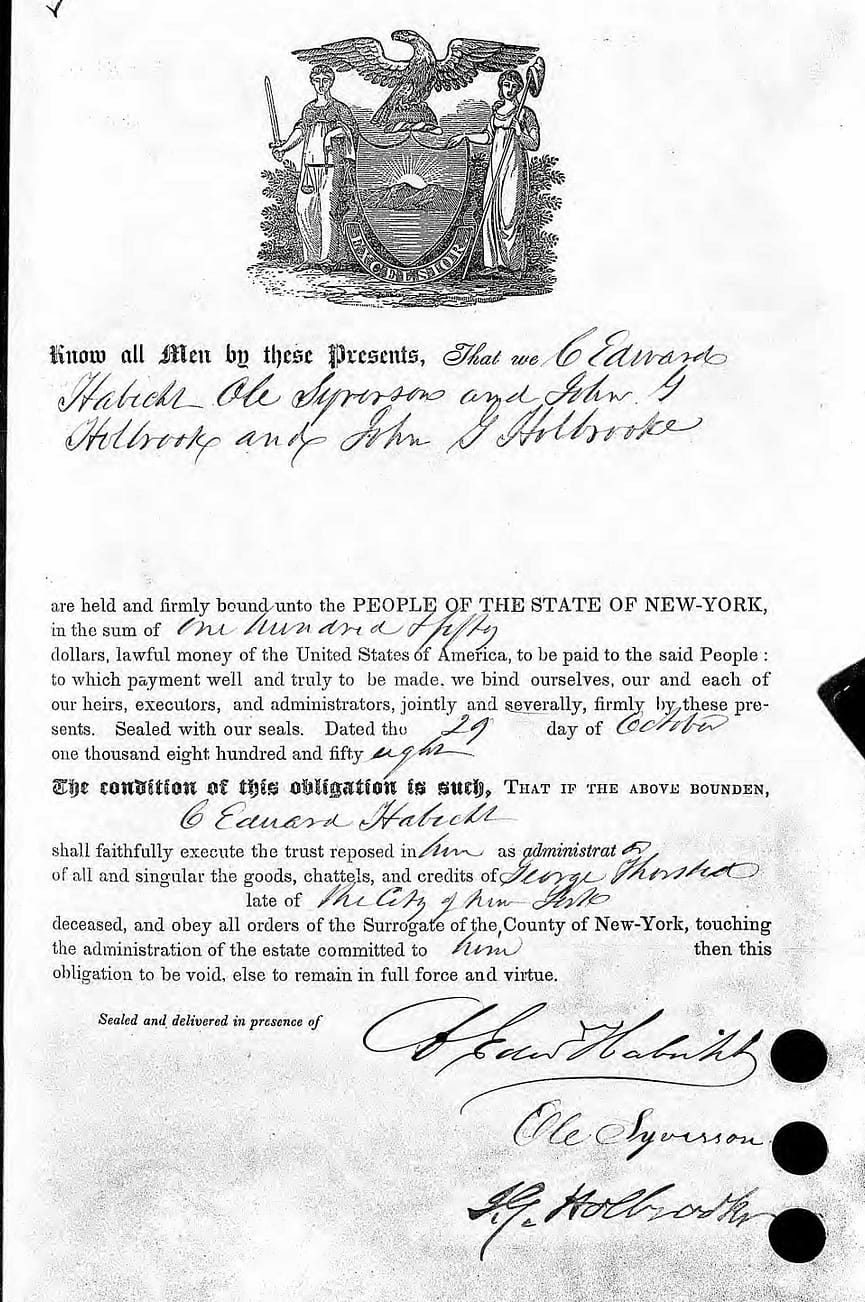 EXCELSIOR
Know all Men by these Presents, That we C Edward
Habicht Ole Syverson and John G
Holbrook and John G Holbrooke
are held and firmly bound unto the PEOPLE OF THE STATE OF NEW-YORK,
in the sum of One hundred & fifty
dollars, lawful money of the United States of America, to be paid to the said People :
to which payment well and truly to be made, we bind ourselves, our and each of
our heirs, executors, and administrators, jointly and severally, firmly by these pre-
sents. Sealed with our seals. Dated the 29 day of October
one thousand eight hundred and fifty eight
The condition of this obligation is such, THAT IF THE ABOVE BOUNDEN,
C Edward Habicht
shall faithfully execute the trust reposed in him as administrator
of all and singular the goods, chattels, and credits of George Thorsted
late of the City of New York
deceased, and obey all orders of the Surrogate of the County of New-York, touching
the administration of the estate committed to him then this
obligation to be void, else to remain in full force and virtue.
Sealed and delivered in presence of
C Edw Habicht
Ole Syversson
J. G. Holbrooke